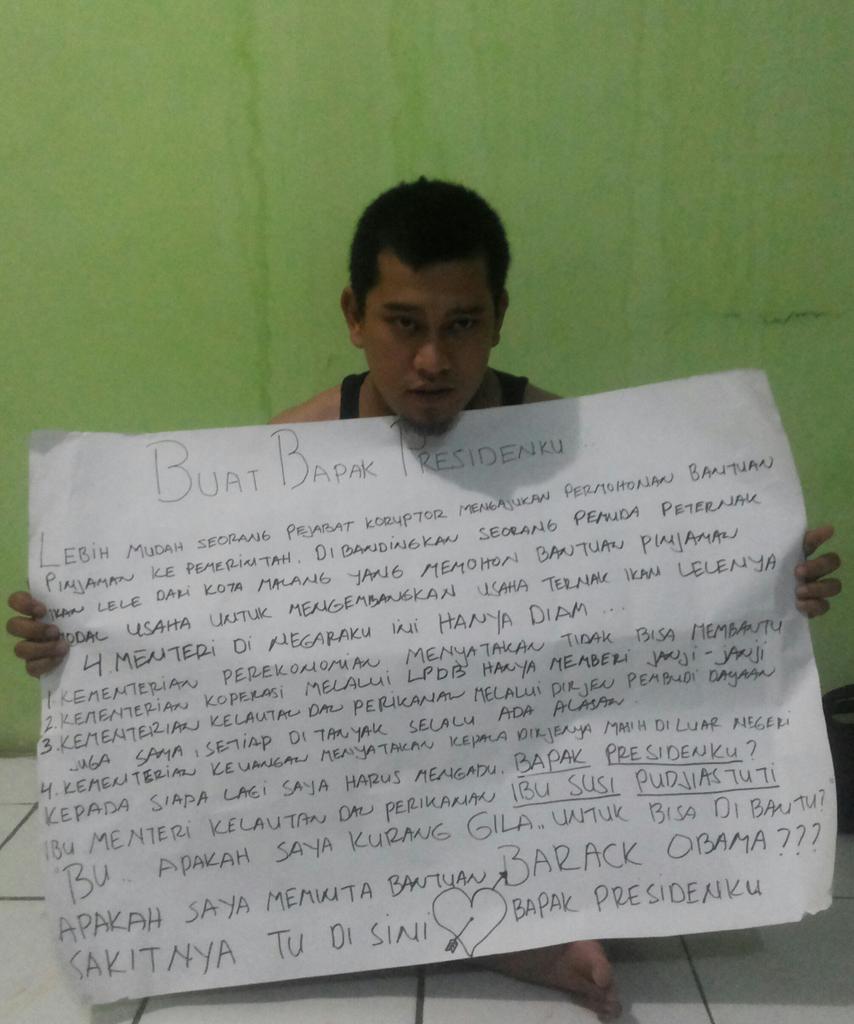 BUAT BAPAK PRESIDENKU...
LEBIH MUDAH SEORANG PEJABAT KORUPTOR MENGAJUKAN PERMOHONAN BANTUAN
PINJAMAN KE PEMERINTAH. DIBANDINGKAN SEORANG PEMUDA PETERNAK
IKAN LELE DARI KOTA MALANG YANG MEMOHON BANTUAN PINJAMAN
MODAL USAHA UNTUK MENGEMBANGKAN USAHA TERNAK IKAN LELENYA
4 MENTERI DI NEGARAKU INI HANYA DIAM...
1. KEMENTERIAN PEREKONOMIAN MENYATAKAN TIDAK BISA MEMBANTU
2. KEMENTERIAN KOPERASI MELALUI LPDB HANYA MEMBERI JANJI-JANJI
3. KEMENTERIAN KELAUTAN DAN PERIKANAN MELALUI DIRJEN PEMBUDI DAYAAN
JUGA SAMA, SETIAP DI TANYAK SELALU ADA ALASAN.
4. KEMENTERIAN KEUANGAN MENYATAKAN KEPALA DIRJENYA MASIH DI LUAR NEGERI
KEPADA SIAPA LAGI SAYA HARUS MENGADU. BAPAK PRESIDENKU?
IBU MENTERI KELAUTAN DAN PERIKANAN IBU SUSI PUDJIASTUTI
BU.. APAKAH SAYA KURANG GILA.. UNTUK BISA DI BANTU?
APAKAH SAYA MEMINTA BANTUAN BARACK OBAMA???
SAKITNYA TU DI SINI BAPAK PRESIDENKU